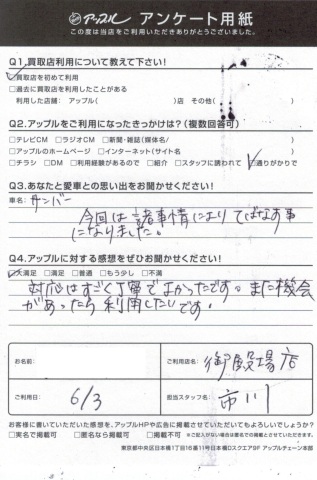 アップル アンケート用紙
この度は当店をご利用いただきありがとうございました。
Q1.買取店利用について教えて下さい!
☑買取店を初めて利用
□過去に買取店を利用したことがある
利用した店舗: アップル( )店 その他( )
Q2.アップルをご利用になったきっかけは?(複数回答可)
□テレビCM □ラジオCM □新聞・雑誌(媒体名/ )
□アップルのホームページ □インターネット(サイト名 )
□チラシ □DM □利用経験があるので □紹介 □スタッフに誘われて ☑通りがかりで
Q3.あなたと愛車との思い出をお聞かせください!
車名: サンバー
今回は諸事情によりてばなす事
になりました。
Q4.アップルに対する感想をぜひお聞かせください!
☑大満足 □満足 □普通 □もう少し □不満
対応はすごく丁寧でよかったです。また機会
があったら利用したいです。
お名前:
ご利用店名: 御殿場店
ご利用日: 6/3
担当スタッフ名: 市川
お客様に書いていただいた感想を、アップルHPや広告に掲載させていただいてもよろしいでしょうか?
□実名で掲載可 □匿名なら掲載可 □掲載不可 ※ご記入がない場合は匿名での掲載とさせていただきます。
東京都中央区日本橋1丁目16番11号日本橋Dスクエア9F アップルチェーン本部